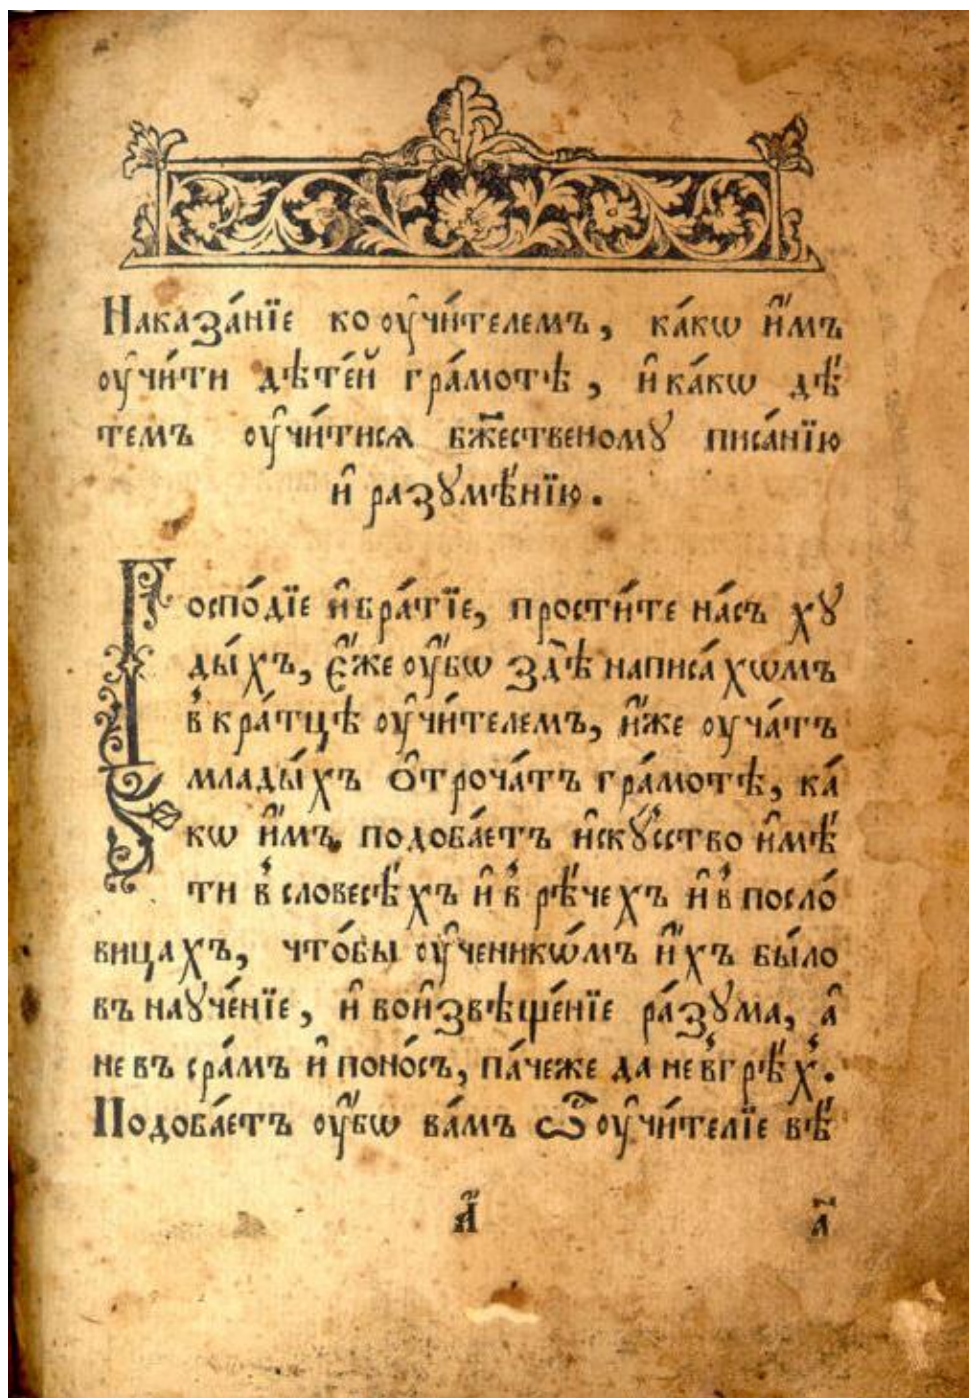 Наказа́нїе ко оу҆чи́телемъ, ка́кѡ и҆̀мъ
оу҆чи́ти дѣте́й гра́мотѣ, и҆ ка́кѡ дѣ́
темъ оу҆чи́тисѧ бж҃ественомꙋ писа́нїю
и҆ разꙋмѣ́нїю.
Госпо́дїе и҆ бра́тїе, прости́те на́съ хꙋ
ды́хъ, є҆́же оу҆́бѡ здѣ̀ написа́хѡмъ
в кра́тцѣ оу҆чи́телемъ, и҆́же оуча́тъ
млады́хъ ѻ҆троча́тъ гра́мотѣ, ка́
кѡ и҆̀мъ подоба́етъ и҆скꙋ́сство и҆мѣ́
ти в словесѣ́хъ и҆ в рѣ́чехъ и҆ в посло́
вицахъ, что́бы оу҆ченикѡ́мъ и҆́хъ бы́ло
въ наꙋче́нїе, и҆ во и҆звѣще́нїе ра́зꙋма, а҆
не въ сра́мъ и҆ поно́съ, па́чеже да не в грѣ́х.
Подоба́етъ оу҆́бѡ ва́мъ ѽ оу҆чи́телїе вѣ́
а҃
а҃